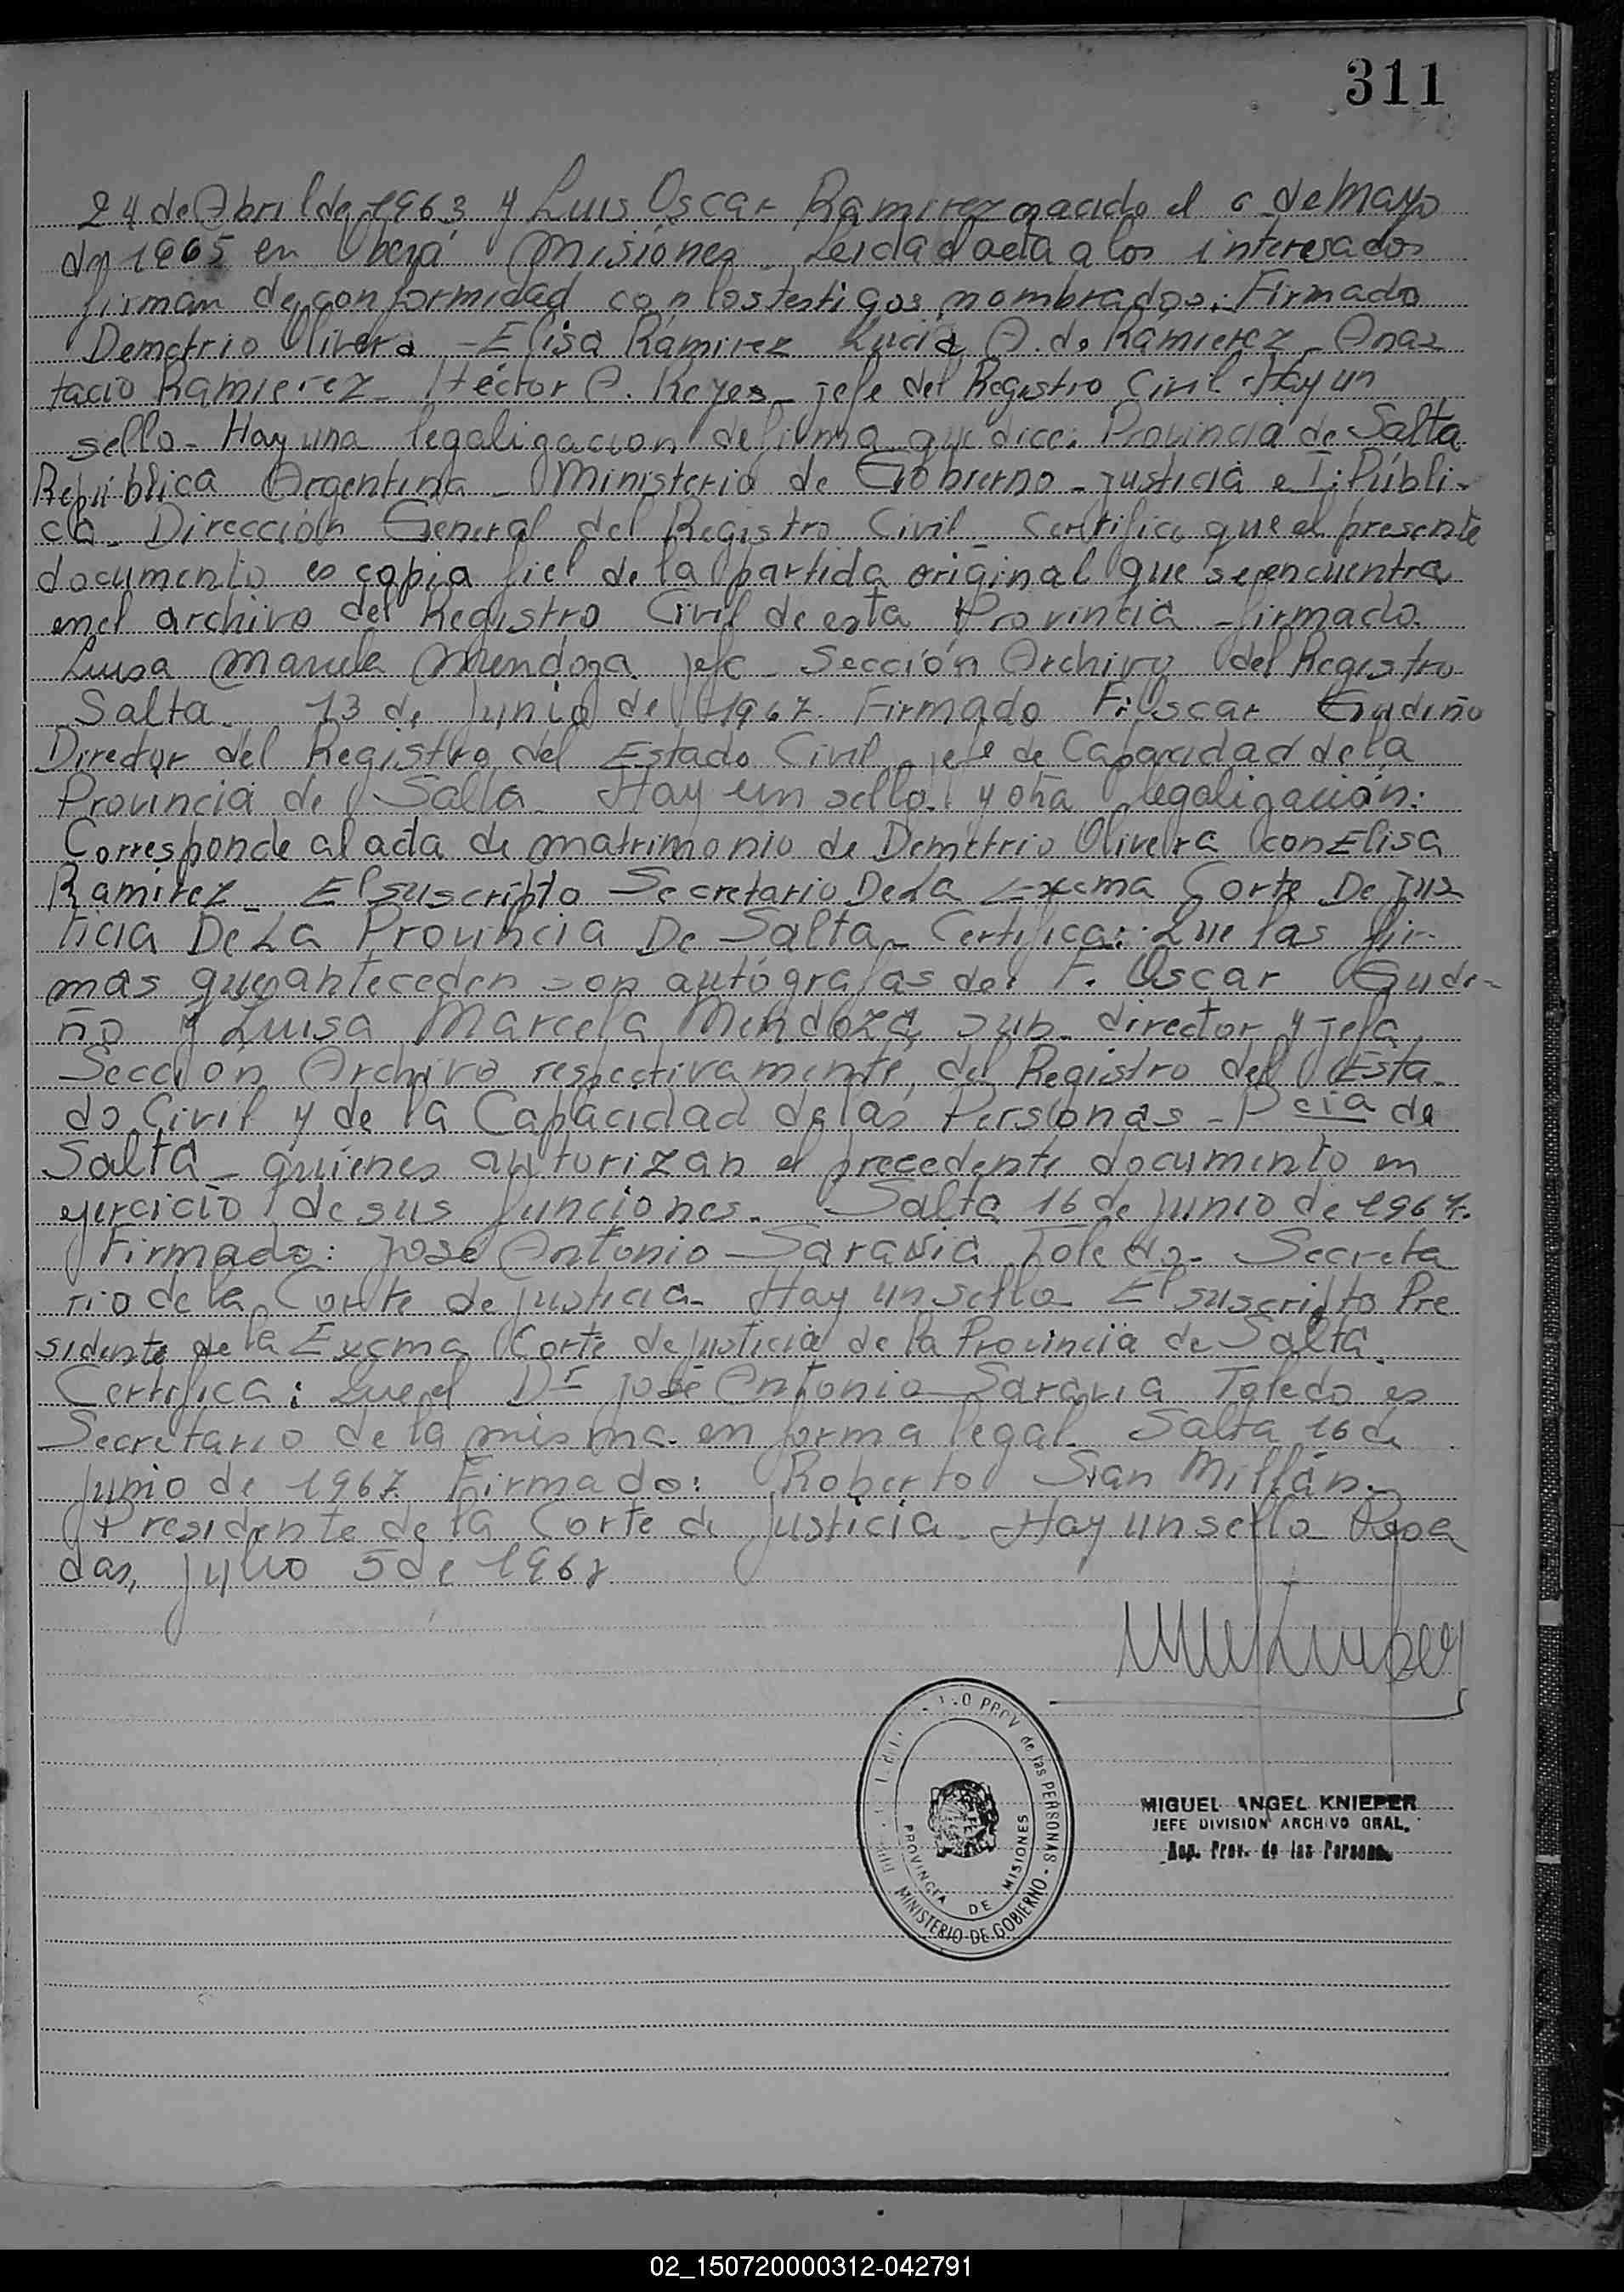 311
24 de Abril de 1963 y Luis Oscar Ramirez nacido el 6 de Mayo
de 1965 en Oberá Misiónes. Leida el acta a los interesados
firman de conformidad con los testigos nombrados: Firmado
Demetrio Olivera - Elisa Ramirez Lucia A. de Ramierez - Anas
tacio Ramierez - Héctor A. Reyes - jefe del Registro Civil - Hay un
sello - Hay una legalizacion de firma que dice: Provincia de Salta
República Argentina - Ministerio de Gobierno - justicia e I: Públi-
ca - Dirección General del Registro Civil - Certifico que el presente
documento es copia fiel de la partida original que se encuentra
en el archivo del Registro Civil de esta Provincia - firmado
Luisa Marcela Mendoza jefe - Sección Archivo del Registro
Salta - 13 de junio de 1967. Firmado F. Oscar Gudiño
Director del Registro del Estado Civil jefe de Capacidad de la
Provincia de Salta - Hay un sello y otra legalización:
Corresponde al acta de matrimonio de Demetrio Olivera con Elisa
Ramirez - El suscripto Secretario De La Excma Corte De jus
ticia De La Provincia De Salta - Certifica: Que las fir-
mas que anteceden son autógrafas de: F. Oscar Gudi-
ño y Luisa Marcela Mendoza, sub-director y jefa
Sección Archivo respectivamente, del Registro del Esta-
do Civil y de la Capacidad de las Personas - Pcia de
Salta - quienes autorizan el precedente documento en
ejercicio de sus funciones. Salta 16 de junio de 1967.
Firmado: José Antonio Saravia Toledo - Secreta
rio de la Corte de justicia - Hay un sello El suscripto Pre
sidente de la Excma Corte de justicia de la Provincia de Salta
Certifica: Que el Dr José Antonio Saravia Toledo es
Secretario de la misma en forma legal. Salta 16 de
junio de 1967. Firmado: Roberto San Millán -
Presidente de la Corte de justicia - Hay un sello Posa
das, julio 5 de 1967
PROV de las PERSONAS - MINISTERIO DE GOBIERNO
PROVINCIA DE MISIONES
MIGUEL ANGEL KNIEPER
JEFE DIVISION ARCHIVO GRAL.
Rep. Prov. de las Personas
02_150720000312-042791